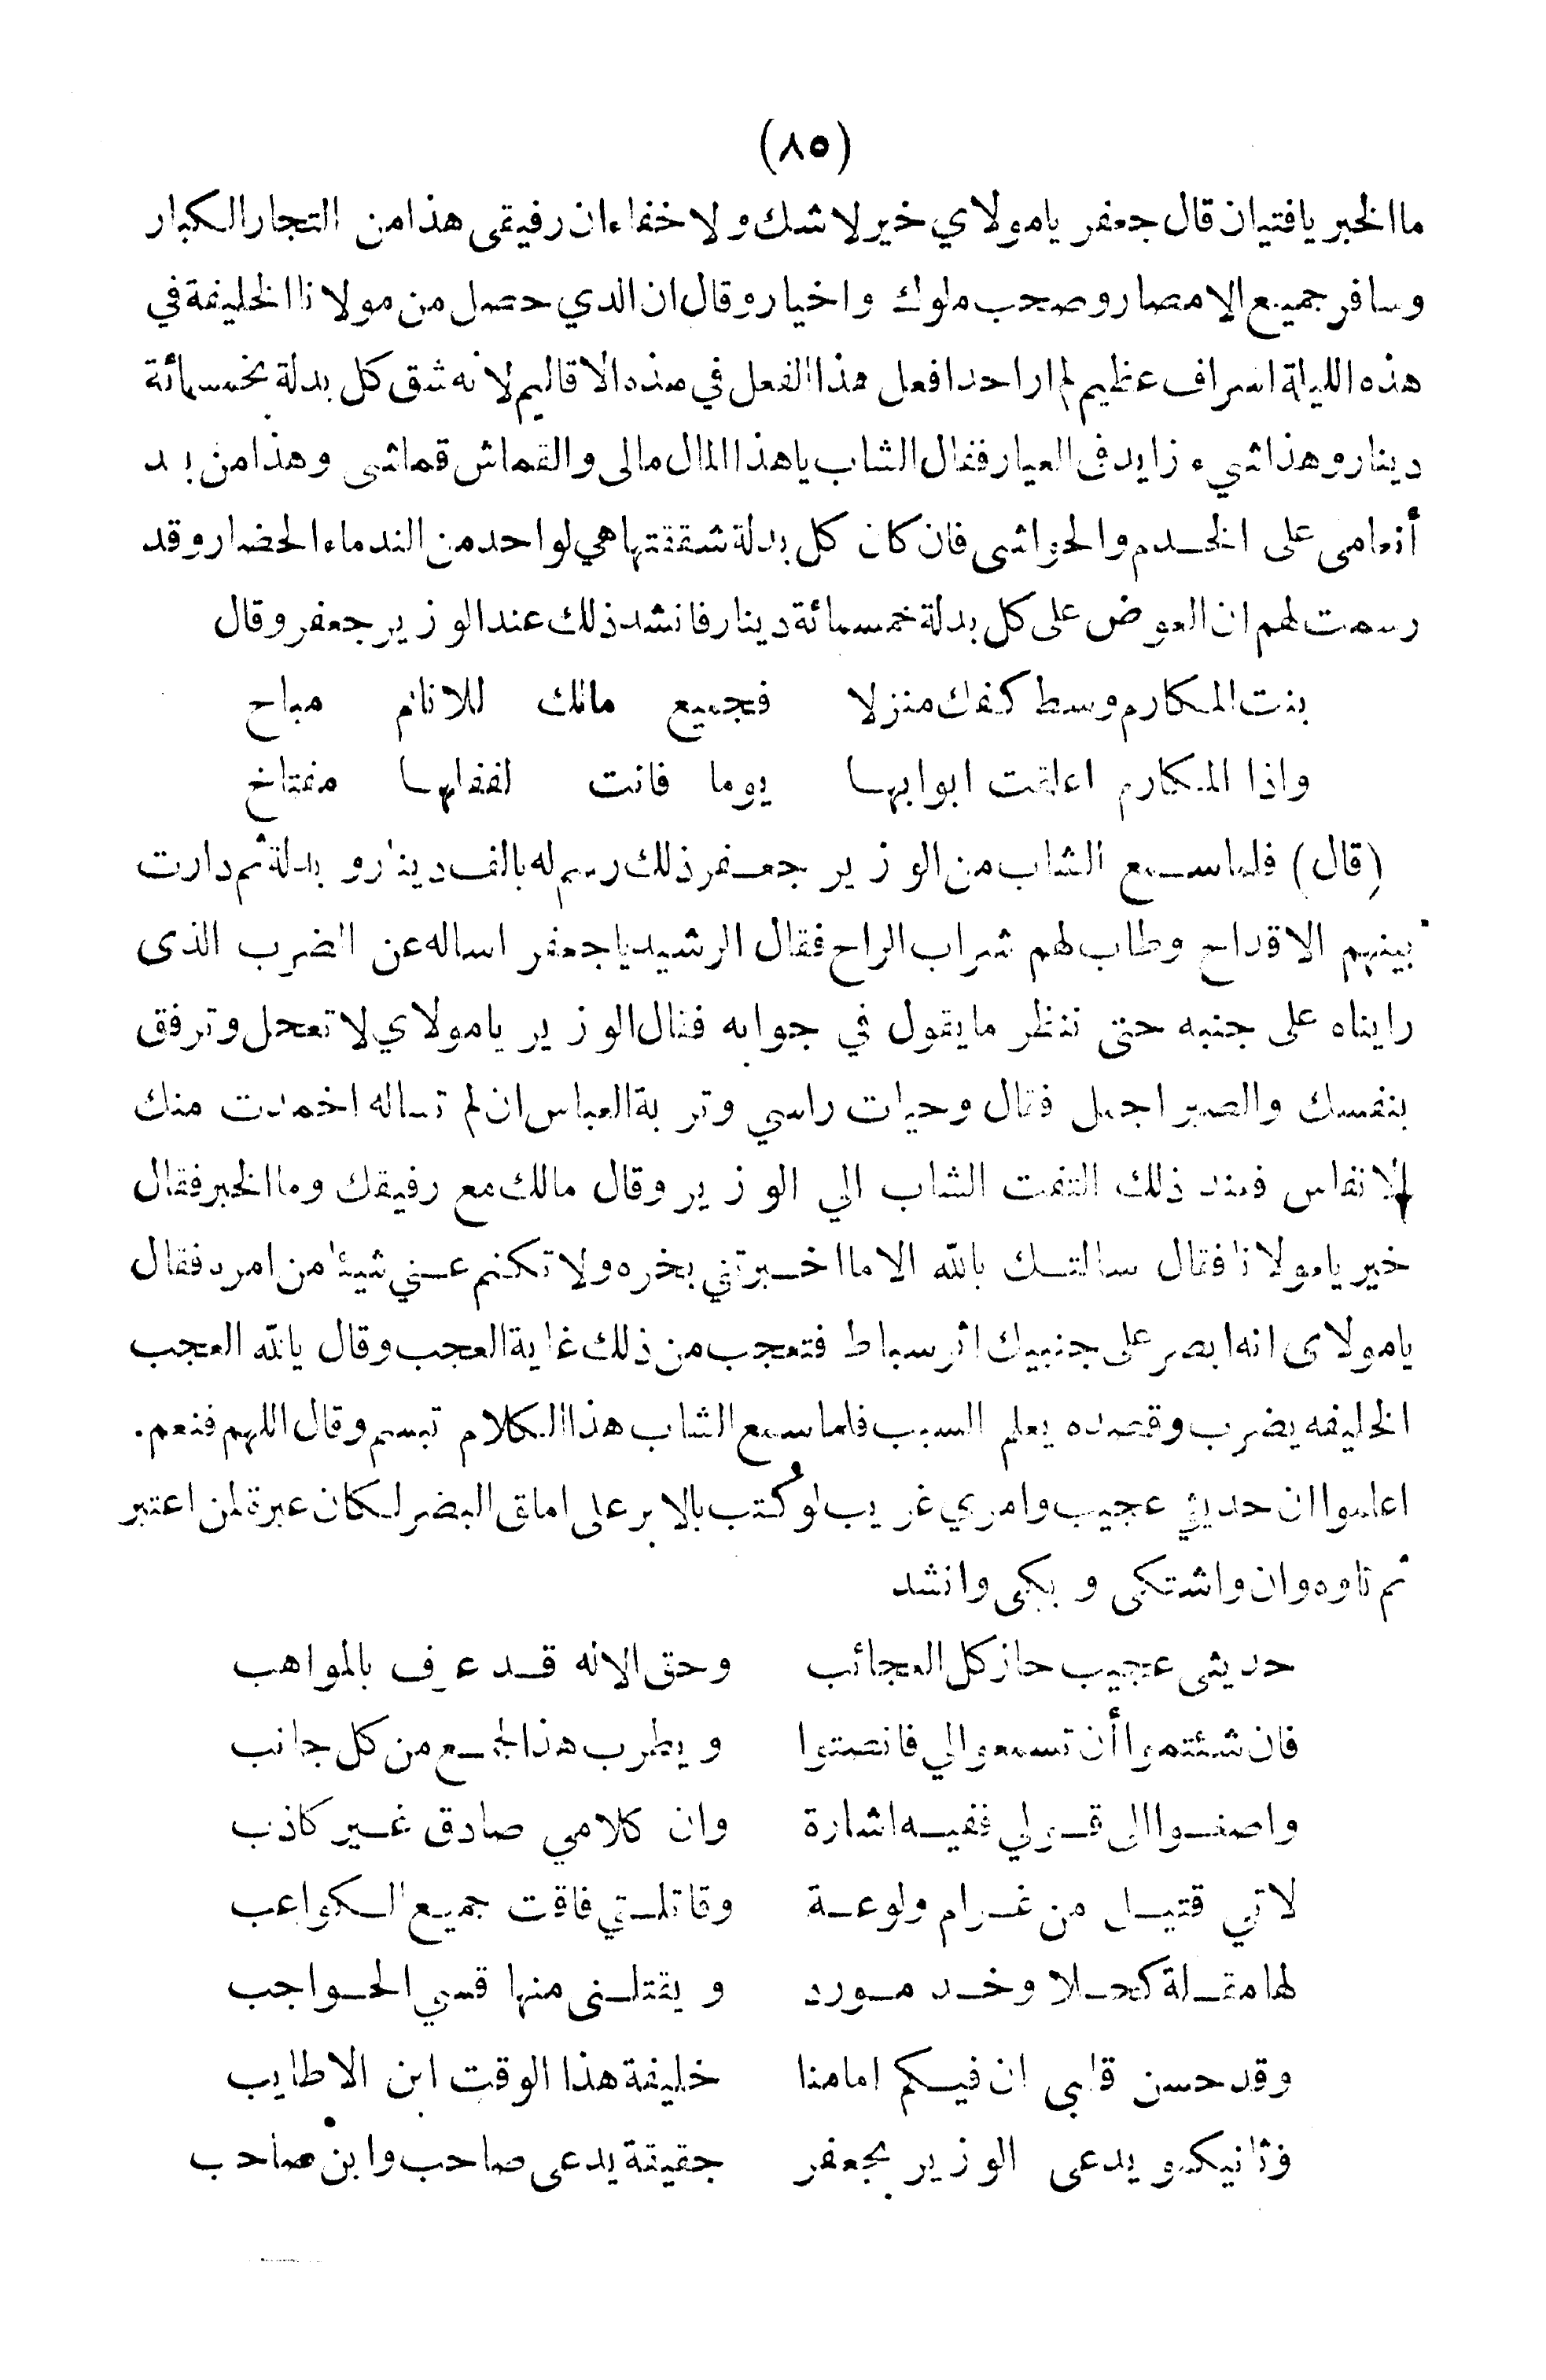 (٨٥)
ما الخبر يافتيان قال جعفر يامولاي خير لا شك ولا خفاء ان رفيقى هذا من التجار الكبار
وسافر جميع الامصار وصحب ملوك واخياره وقال ان الذي حصل من مولانا الخليفة في
هذه الليلة اسراف عظيم لم ار احدا فعل هذا الفعل في هذه الاقاليم لانه شق كل بدلة بخمسمائة
دينار وهذا شيء زايد فى العيار فقال الشاب ياهذا المال مالى والقماش قماشى وهذا من بد
أنعامى على الخدم والحواشى فان كان كل بدلة شققتها هي لواحد من الندماء الحضار وقد
رسمت لهم ان العوض على كل بدلة خمسمائة دينار فانشد ذلك عند الوزير جعفر وقال
بنت المكارم وسط كفك منزلا فجميع مالك للانام مباح
واذا المكارم اغلقت ابوابها يوما فانت لقفلها مفتاح
(قال) فلما سمع الشاب من الوزير جعفر ذلك رسم له بالف دينار وبدلة ثم دارت
بينهم الاقداح وطاب لهم شراب الراح فقال الرشيد ياجعفر اساله عن الضرب الذى
رايناه على جنبه حتى ننظر مايقول في جوابه فقال الوزير يامولاي لا تعجل وترفق
بنفسك والصبر اجمل فقال وحيات راسي وتربة العباس ان لم تساله اخمدت منك
الانفاس فعند ذلك التفت الشاب الي الوزير وقال مالك مع رفيقك وما الخبر فقال
خير يامولانا فقال سالتك بالله الا ما اخبرتني بخره ولا تكتم عني شيئا من امره فقال
يامولاى انه ابصر على جنبيك اثر سباط فتعجب من ذلك غاية العجب وقال يالله العجب
الخليفه يضرب وقصده يعلم السبب فلما سمع الشاب هذا الكلام تبسم وقال اللهم فنعم.
اعلموا ان حديثي عجيب وامري غريب لو كُتب بالابر على اماق البضر لكان عبرة لمن اعتبر
ثم تاوه وان واشتكى وبكى وانشد
حديثى عجيب حاز كل العجائب وحق الاله قد عرف بالمواهب
فان شئتموا أن تسمعوا لي فانصتوا ويطرب هذا الجمع من كل جانب
واصغوا الى قولي ففيه اشارة وان كلامي صادق غير كاذب
لاني قتيل من غرام ولوعة وقاتلتي فاقت جميع الكواعب
لها مقلة كحلا وخد مورد ويقتلنى منها قسي الحواجب
وقد حسن قلبى ان فيكم امامنا خليفة هذا الوقت ابن الاطايب
وثانيكمو يدعى الوزير بجعفر حقيقة يدعى صاحب وابن صاحب